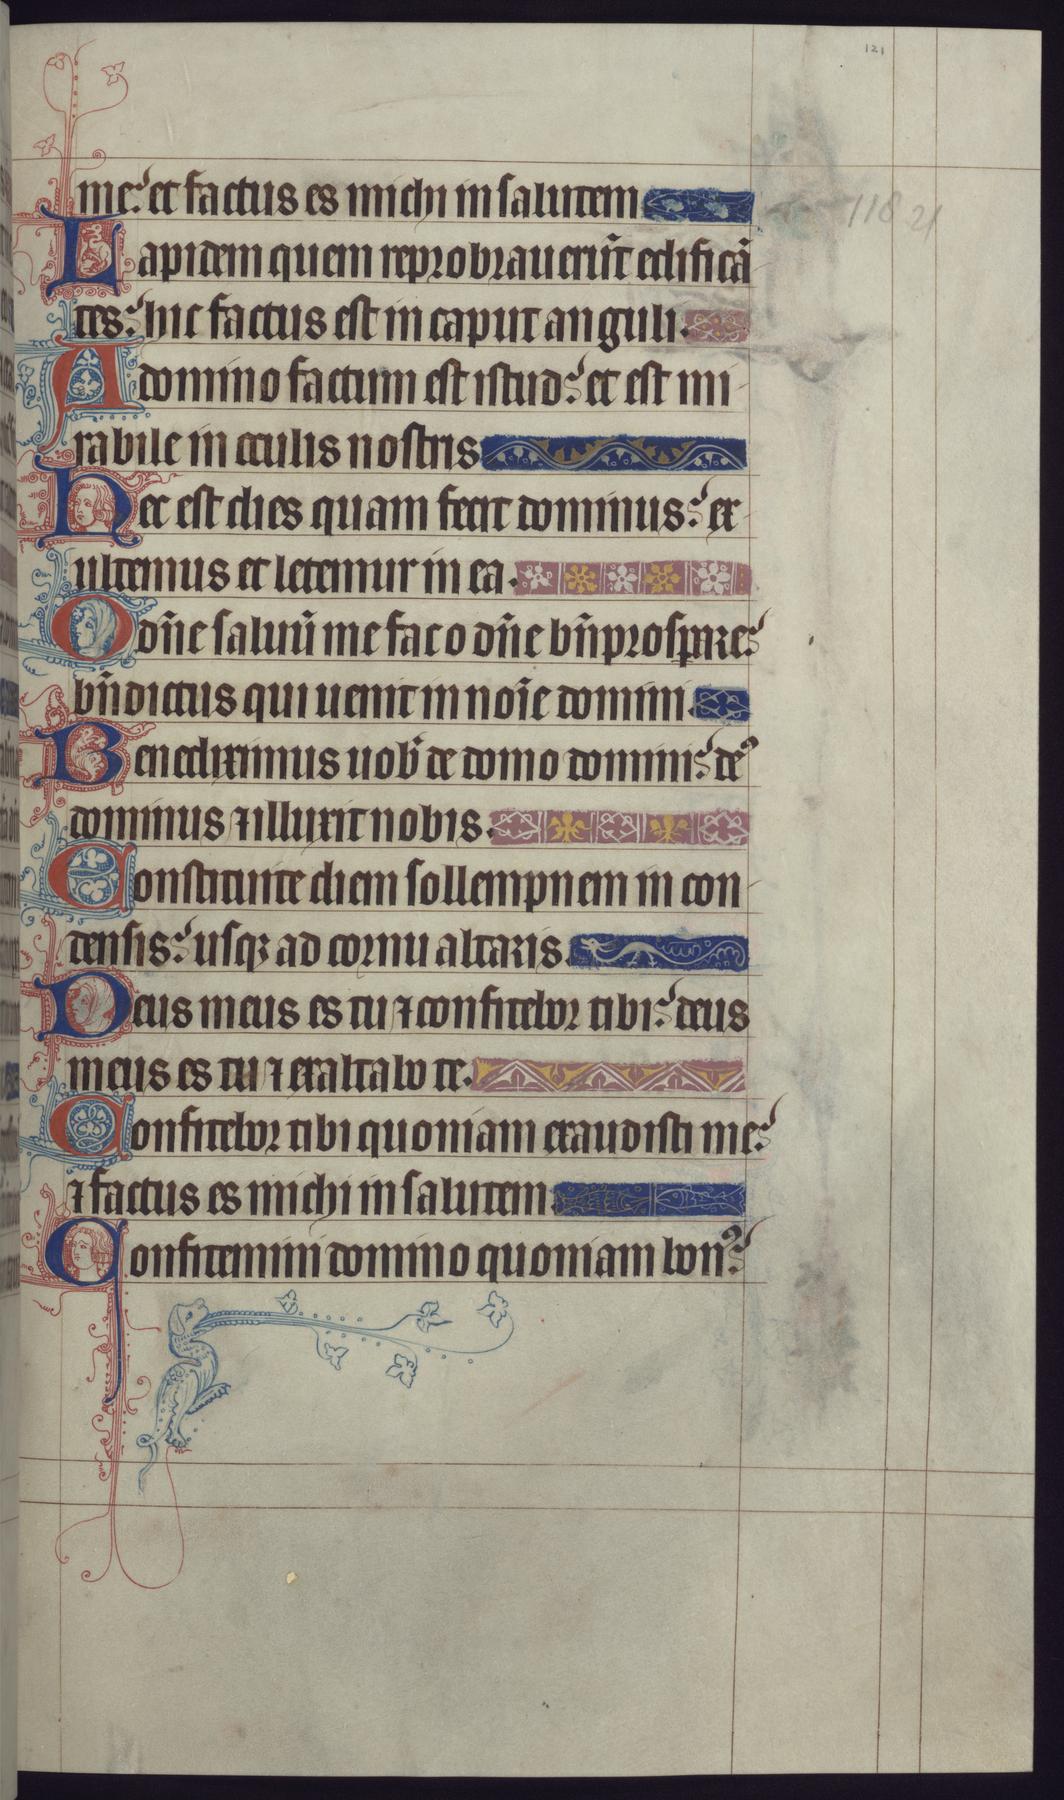 121
me: et factus es michi in salutem
118 21
Lapidem quem reprobrauerūt edificā
tes: hic factus est in caput anguli.
A domino factum est istud: et est mi
rabile in oculis nostris
Hec est dies quam fecit dominus: ex
ultemus et letemur in ea.
O dñe saluū me fac o dñe bñ prosꝑare:
bñdictus qui uenit in noīe domini.
Benediximus uob̄ de domo domini: deꝰ
dominus ⁊ illuxit nobis.
Constituite diem sollempnem in con
densis: usqꝫ ad cornu altaris.
Deus meus es tu ⁊ confitebor tibi: deus
meus es tu ⁊ exaltabo te.
Confitebor tibi quoniam exaudisti me:
⁊ factus es michi in salutem.
Confitemini domino quoniam bonꝰ: